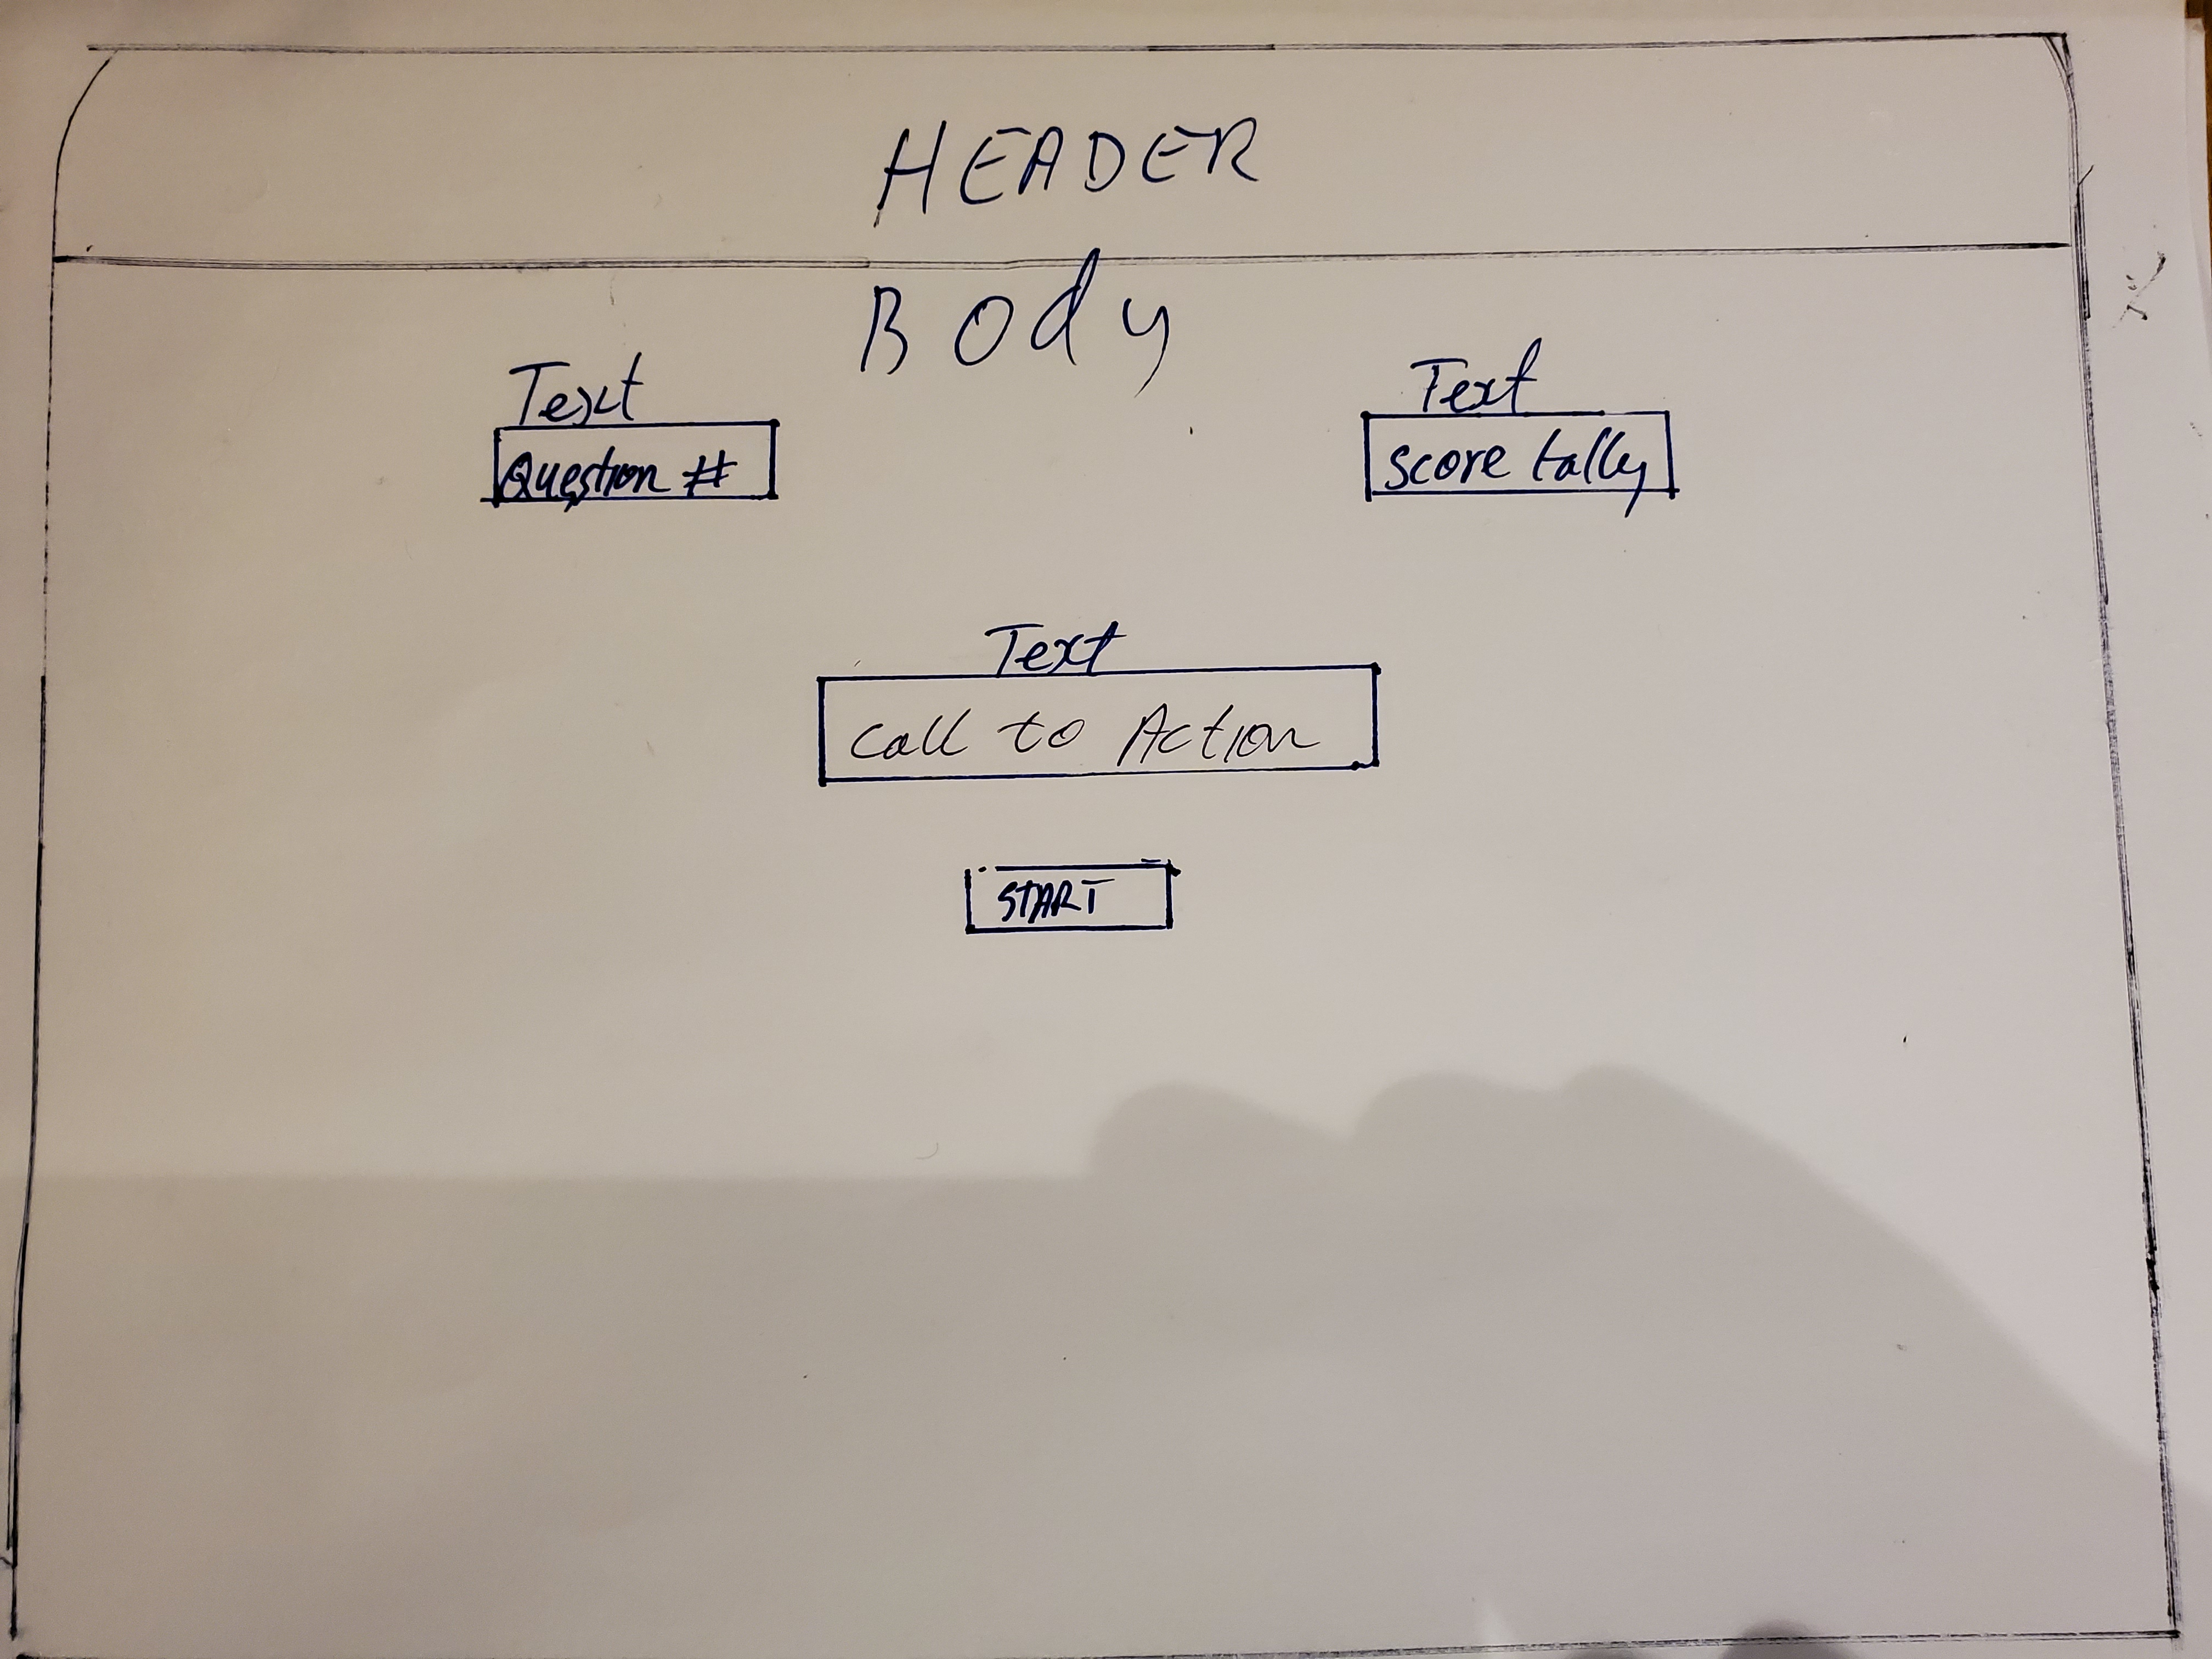 HEADER
Body
Text
Text
Question #
score tally
Text
Call to Action
START